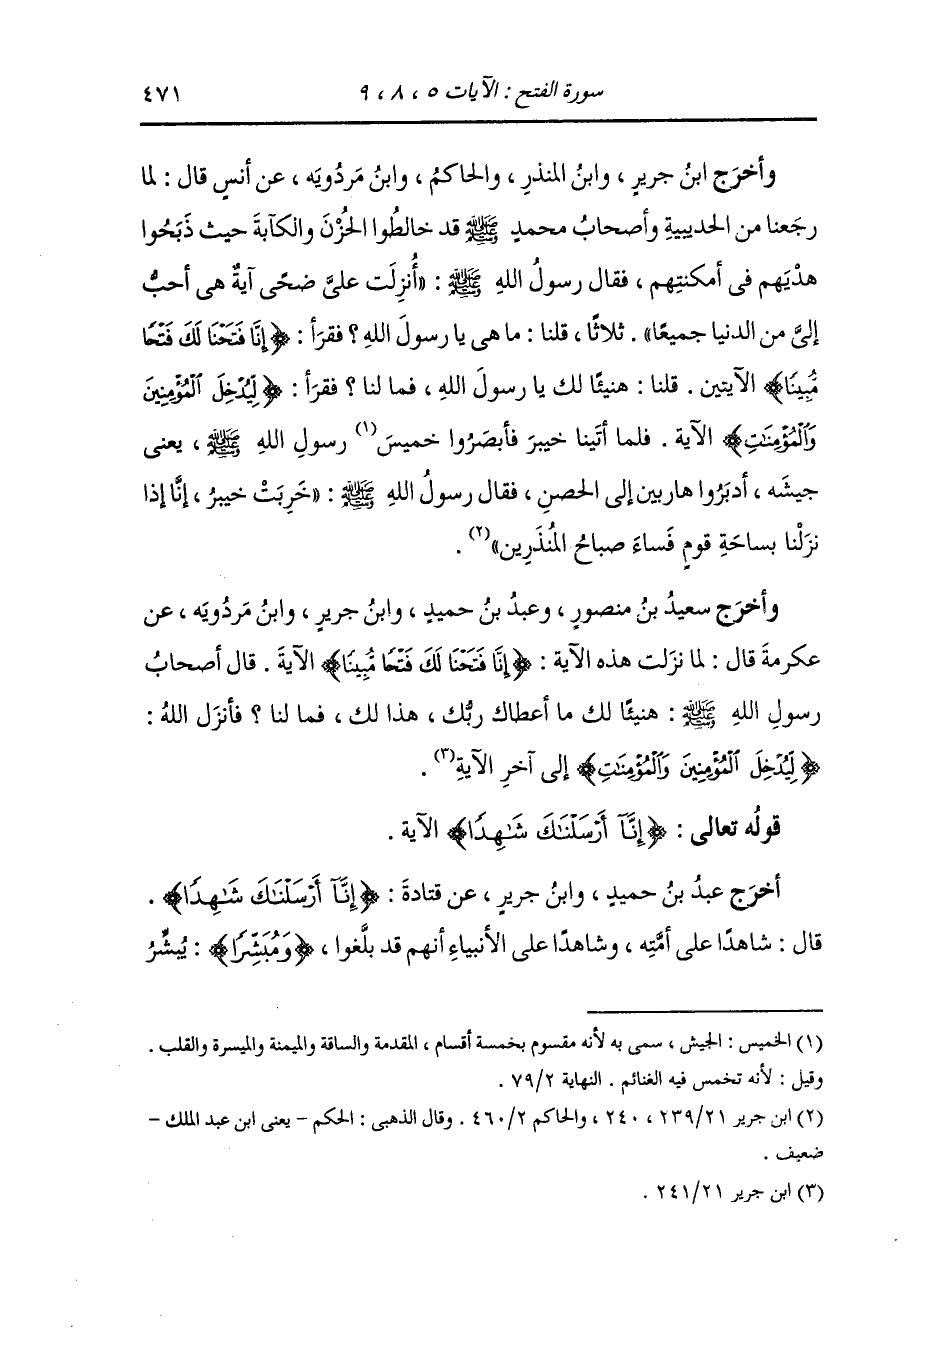 سورة الفتح : الآيات ٥ ، ٨ ، ٩ ٤٧١
وأخرَج ابنُ جريرٍ ، وابنُ المنذرِ ، والحاكمُ ، وابنُ مَردُويَه ، عن أنسٍ قال : لما
رجَعنا من الحديبيةِ وأصحابُ محمدٍ ﷺ قد خالطُوا الحُزْنَ والكآبةَ حيث ذَبَحُوا
هدْيَهم فى أمكنتِهم ، فقال رسولُ اللهِ ﷺ : «أُنزِلَت علىَّ ضحًى آيةٌ هى أحبُّ
إلىَّ من الدنيا جميعًا» . ثلاثًا ، قلنا : ما هى يا رسولَ اللهِ ؟ فقرَأ : ﴿إِنَّا فَتَحْنَا لَكَ فَتْحًا
مُّبِينًا﴾ الآيتين . قلنا : هنيئًا لك يا رسولَ اللهِ ، فما لنا ؟ فقرَأ : ﴿لِّيُدْخِلَ ٱلْمُؤْمِنِينَ
وَٱلْمُؤْمِنَٰتِ﴾ الآية . فلما أتَينا خيبرَ فأبصَرُوا خميسَ(١) رسولِ اللهِ ﷺ ، يعنى
جيشَه ، أدبَرُوا هاربين إلى الحصنِ ، فقال رسولُ اللهِ ﷺ : «خَرِبَتْ خيبرُ ، إنَّا إذا
نزَلْنا بساحَةِ قومٍ فَساءَ صباحُ المُنذَرِين»(٢) .
وأخرَج سعيدُ بنُ منصورٍ ، وعبدُ بنُ حميدٍ ، وابنُ جريرٍ ، وابنُ مَردُويَه ، عن
عكرمةَ قال : لما نزَلت هذه الآية : ﴿إِنَّا فَتَحْنَا لَكَ فَتْحًا مُّبِينًا﴾ الآيةَ . قال أصحابُ
رسولِ اللهِ ﷺ : هنيئًا لك ما أعطاك ربُّك ، هذا لك ، فما لنا ؟ فأنزَل اللهُ :
﴿لِّيُدْخِلَ ٱلْمُؤْمِنِينَ وَٱلْمُؤْمِنَٰتِ﴾ إلى آخرِ الآيةِ(٣) .
قولُه تعالى : ﴿إِنَّآ أَرْسَلْنَٰكَ شَٰهِدًا﴾ الآية .
أخرَج عبدُ بنُ حميدٍ ، وابنُ جريرٍ ، عن قتادةَ : ﴿إِنَّآ أَرْسَلْنَٰكَ شَٰهِدًا﴾ .
قال : شاهدًا على أمَّتِه ، وشاهدًا على الأنبياءِ أنهم قد بلَّغوا ، ﴿وَمُبَشِّرًا﴾ : يُبشِّرُ
(١) الخميس : الجيش ، سمى به لأنه مقسوم بخمسة أقسام ، المقدمة والساقة والميمنة والميسرة والقلب .
وقيل : لأنه تخمس فيه الغنائم . النهاية ٧٩/٢ .
(٢) ابن جرير ٢٣٩/٢١ ، ٢٤٠ ، والحاكم ٤٦٠/٢ . وقال الذهبى : الحكم – يعنى ابن عبد الملك –
ضعيف .
(٣) ابن جرير ٢٤١/٢١ .